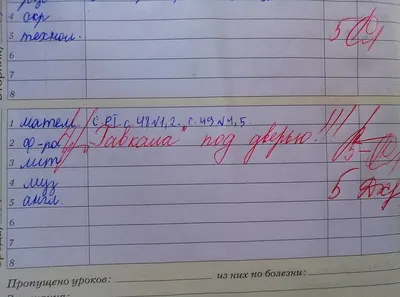 4 аор
5 технол. 5
6
7
8
1 матем. с. РТ с. 48 №1, 2. с. 49 №4, 5.
2 ф-ра !!! "Гавкала" под дверью!!! 5
3 лит
4 муз
5 англ. 5
6
7
8
Пропущено уроков: из них по болезни: